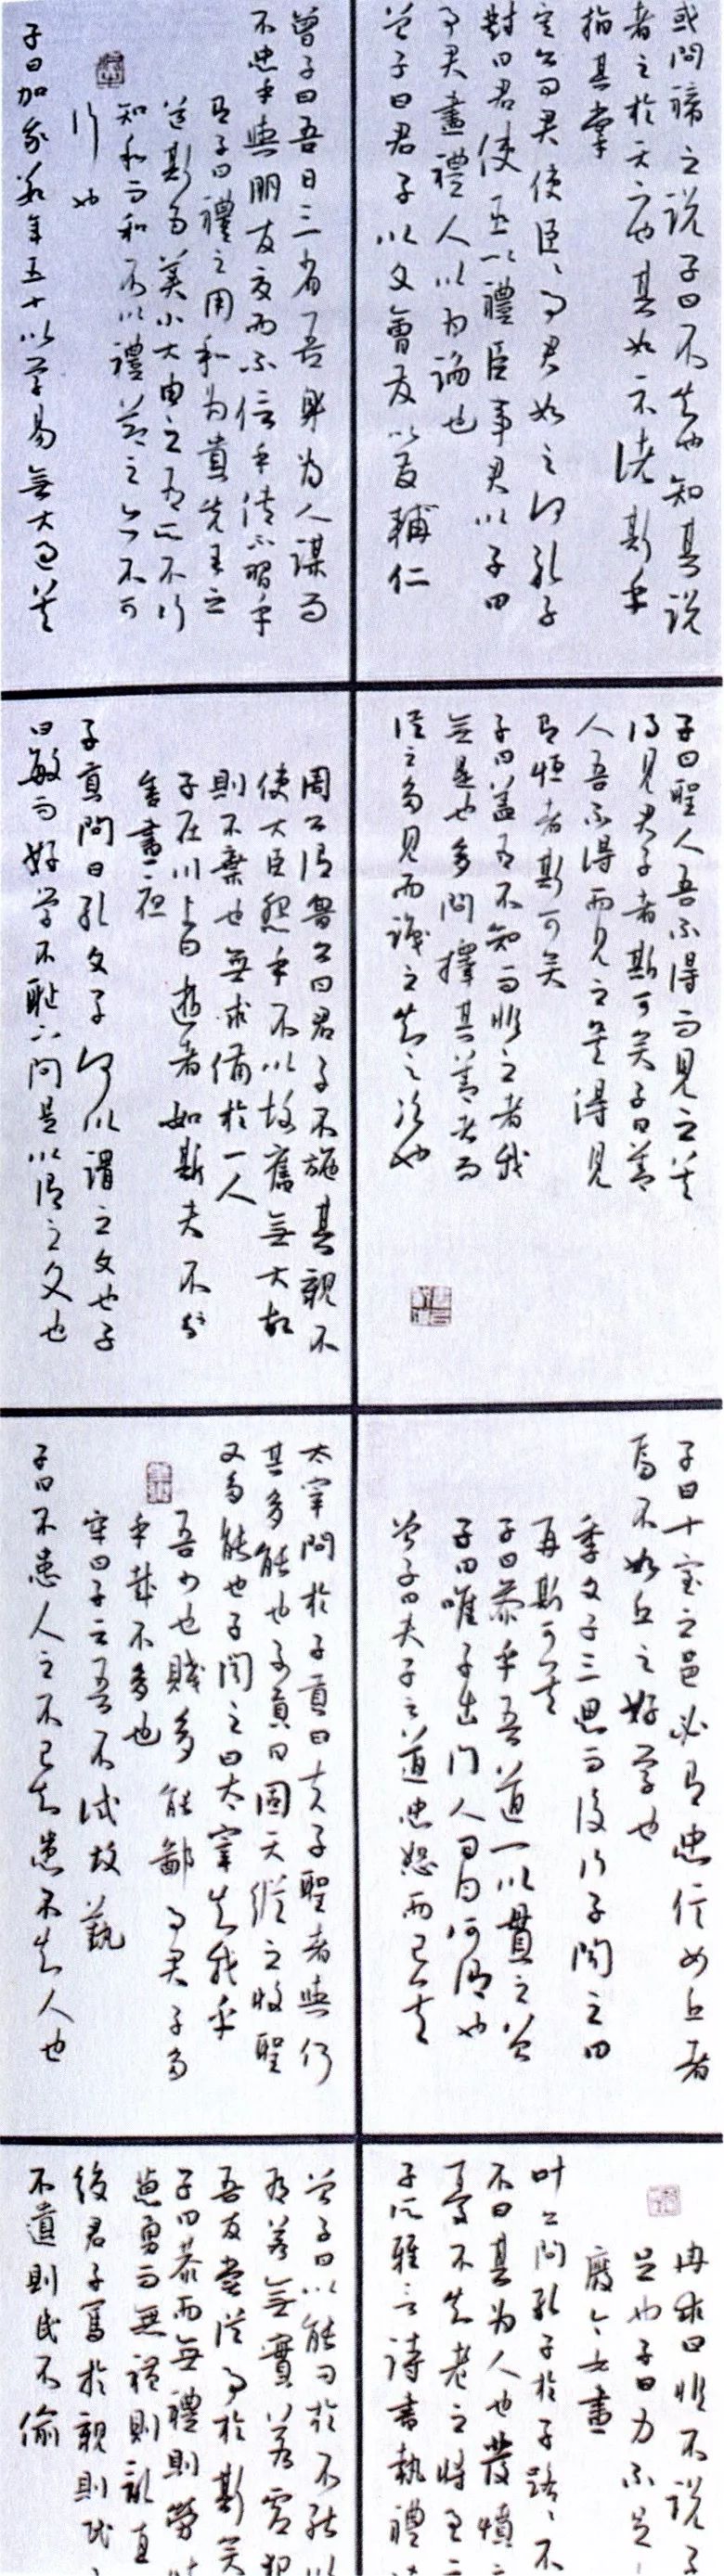 或問禘之説子曰不知也知其説
者之於天下也其如示諸斯乎
指其掌
定公問君使臣臣事君如之何孔子
對曰君使臣以禮臣事君以子曰
事君盡禮人以為諂也
曾子曰君子以文會友以友輔仁
曾子曰吾日三省吾身為人謀而
不忠乎與朋友交而不信乎傳不習乎
有子曰禮之用和為貴先王之
道斯為美小大由之有所不行
知和而和不以禮節之亦不可
行也
子曰加我數年五十以學易無大過矣
子曰聖人吾不得而見之矣
得見君子者斯可矣子曰善
人吾不得而見之矣得見
有恒者斯可矣
子曰蓋有不知而作之者我
無是也多聞擇其善者而
從之多見而識之知之次也
周公謂魯公曰君子不施其親不
使大臣怨乎不以故舊無大故
則不棄也無求備於一人
子在川上曰逝者如斯夫不
舍晝夜
子貢問曰孔文子何以謂之文也子
曰敏而好學不恥下問是以謂之文也
子曰十室之邑必有忠信如丘者
焉不如丘之好學也
季文子三思而後行子聞之曰
再斯可矣
子曰參乎吾道一以貫之曾
子曰唯子出門人問曰何謂也
曾子曰夫子之道忠恕而已矣
太宰問於子貢曰夫子聖者與何
其多能也子貢曰固天縱之將聖
又多能也子聞之曰太宰知我乎
吾少也賤多能鄙事君子多
乎哉不多也
牢曰子云吾不試故藝
子曰不患人之不己知患不知人也
冉求曰非不説子
足也子曰力不足
廢今女畫
叶公問孔子於子路子路不
不曰其為人也發憤忘
憂不知老之將至云
子所雅言詩書執禮
曾子曰以能問於不能以
有若無實若虛犯
吾友嘗從事於斯矣
子曰恭而無禮則勞
葸勇而無禮則亂直
後君子篤於親則民
不遺則民不偷